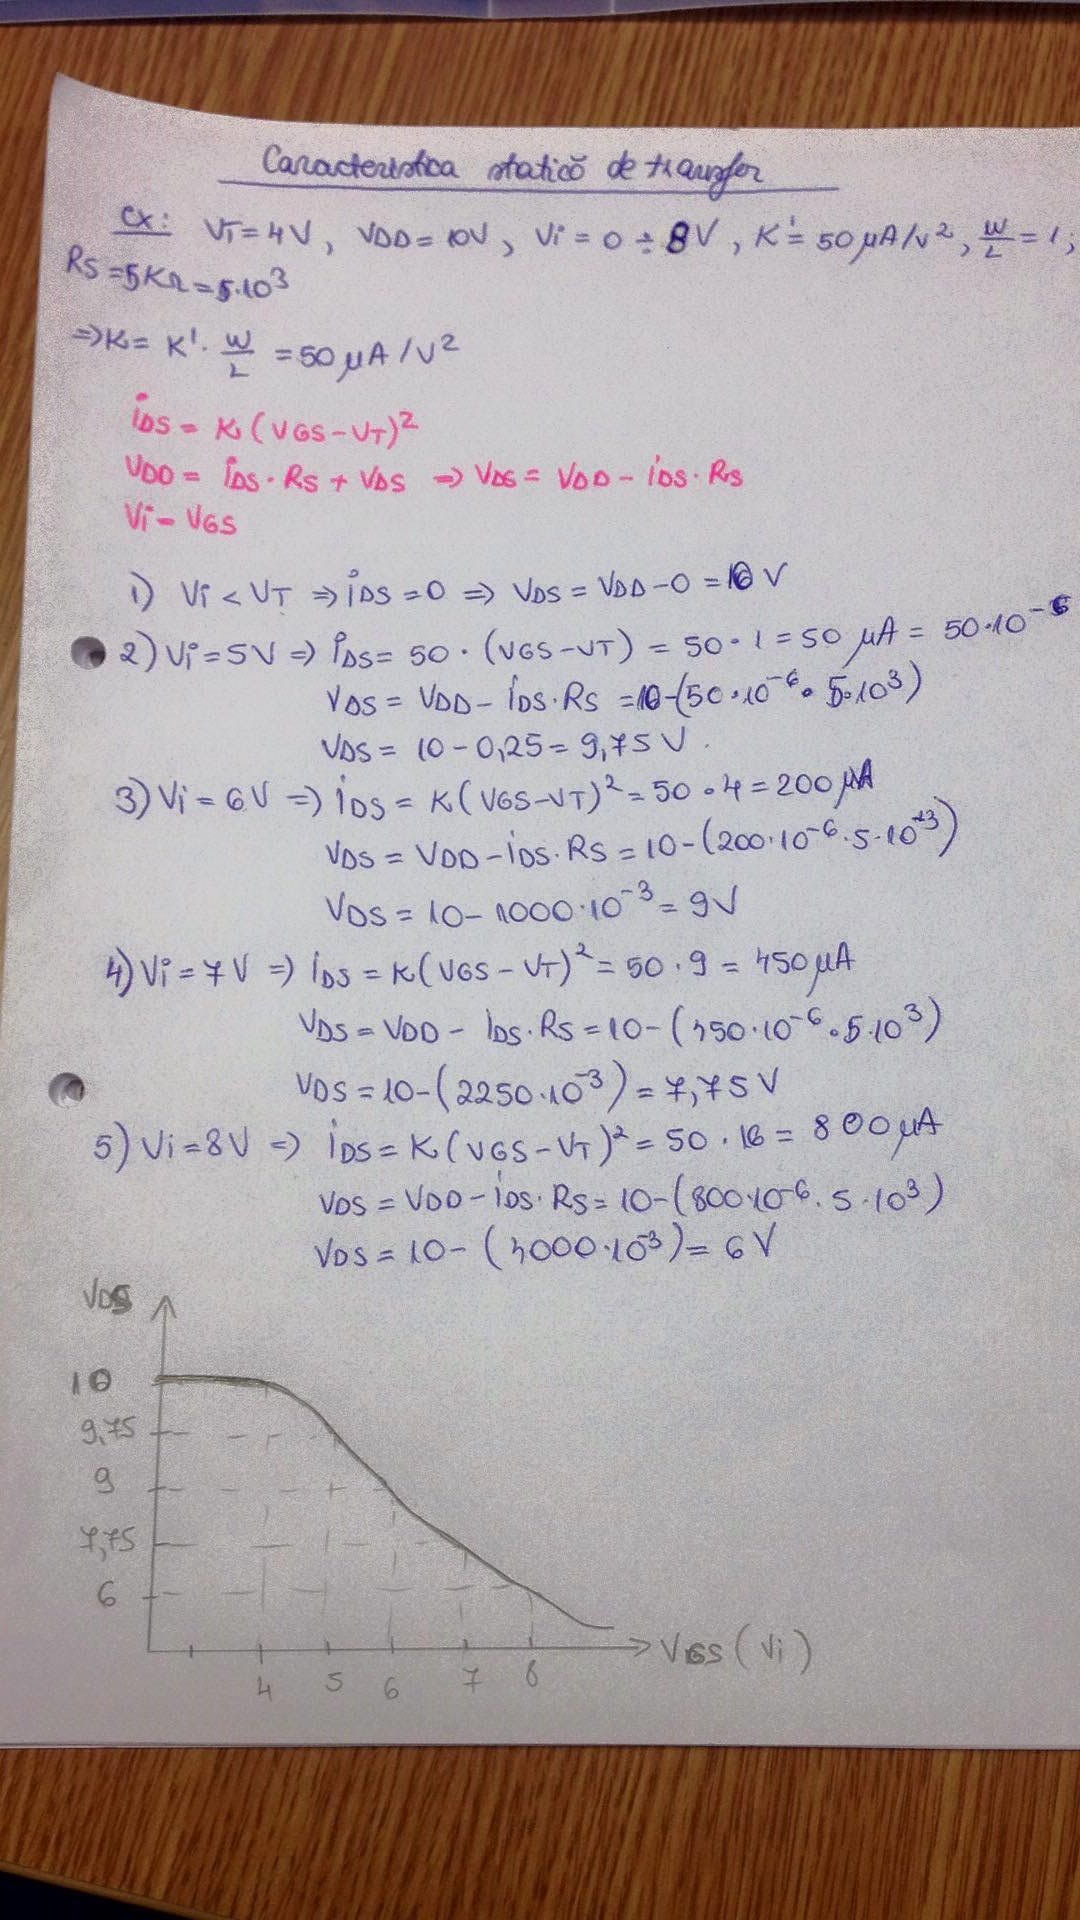 Caracteristica statică de transfer
ex: VT=4V, VDD=10V, Vi=0÷8V, K'=50µA/V², W/L=1;
RS=5KΩ=5·10³
⇒K= K'· W/L =50µA/V²
iDS= K(VGS-VT)²
VDD= iDS·RS+VDS ⇒ VDS= VDD-iDS·RS
Vi-VGS
1) Vi<VT ⇒iDS=0 ⇒ VDS=VDD-0=10V
2) Vi=5V ⇒ iDS= 50·(VGS-VT)=50·1=50µA=50·10⁻⁶
VDS=VDD-iDS·RS=10-(50·10⁻⁶·5·10³)
VDS= 10-0,25=9,75V.
3) Vi=6V ⇒ iDS= K(VGS-VT)²=50·4=200µA
VDS=VDD-iDS·RS=10-(200·10⁻⁶·5·10³)
VDS=10-1000·10⁻³=9V
4) Vi=7V ⇒ iDS=K(VGS-VT)²=50·9=450µA
VDS=VDD-iDS·RS=10-(450·10⁻⁶·5·10³)
VDS=10-(2250·10⁻³)=7,75V
5) Vi=8V ⇒ iDS=K(VGS-VT)²=50·16=800µA
VDS=VDD-iDS·RS=10-(800·10⁻⁶·5·10³)
VDS=10-(4000·10⁻³)=6V
VDS
10
9,75
9
7,75
6
4 5 6 7 8
VGS(Vi)